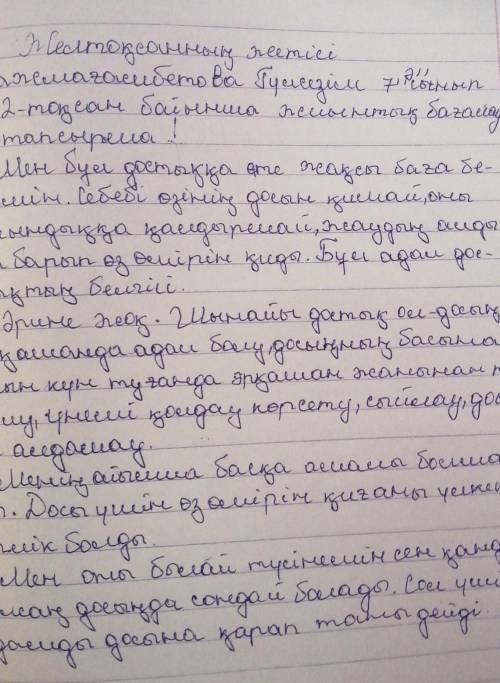 Желтоқсанның жетісі
ажмағамбетова Гүлсезім 7 "Г" сынып
2-тоқсан бойынша жиынтық бағалау
тапсырма!
Мен бұл достыққа өте жақсы баға бе-
мін. Себебі өзінің досын қимай, оны
ындыққа қалдырмай, жаудың алды
барып өз өмірін қиды. Бұл адал дос-
ықтың белгісі.
Әрине жоқ. Шынайы достық ол-досың
қашанда адал болу, досыңның басына
ын күн туғанда әрқашан жанынан т
лу, үнемі қолдау көрсету, сыйлау, дос
алдамау.
Менің ойымша басқа амалы болма
Досы үшін өз өмірін қиғаны үлкен
лік болды.
Мен оны былай түсінемін сен қанд
лсаң досыңда сондай болады. Сол үші
дамды досына қарап таны дейді.